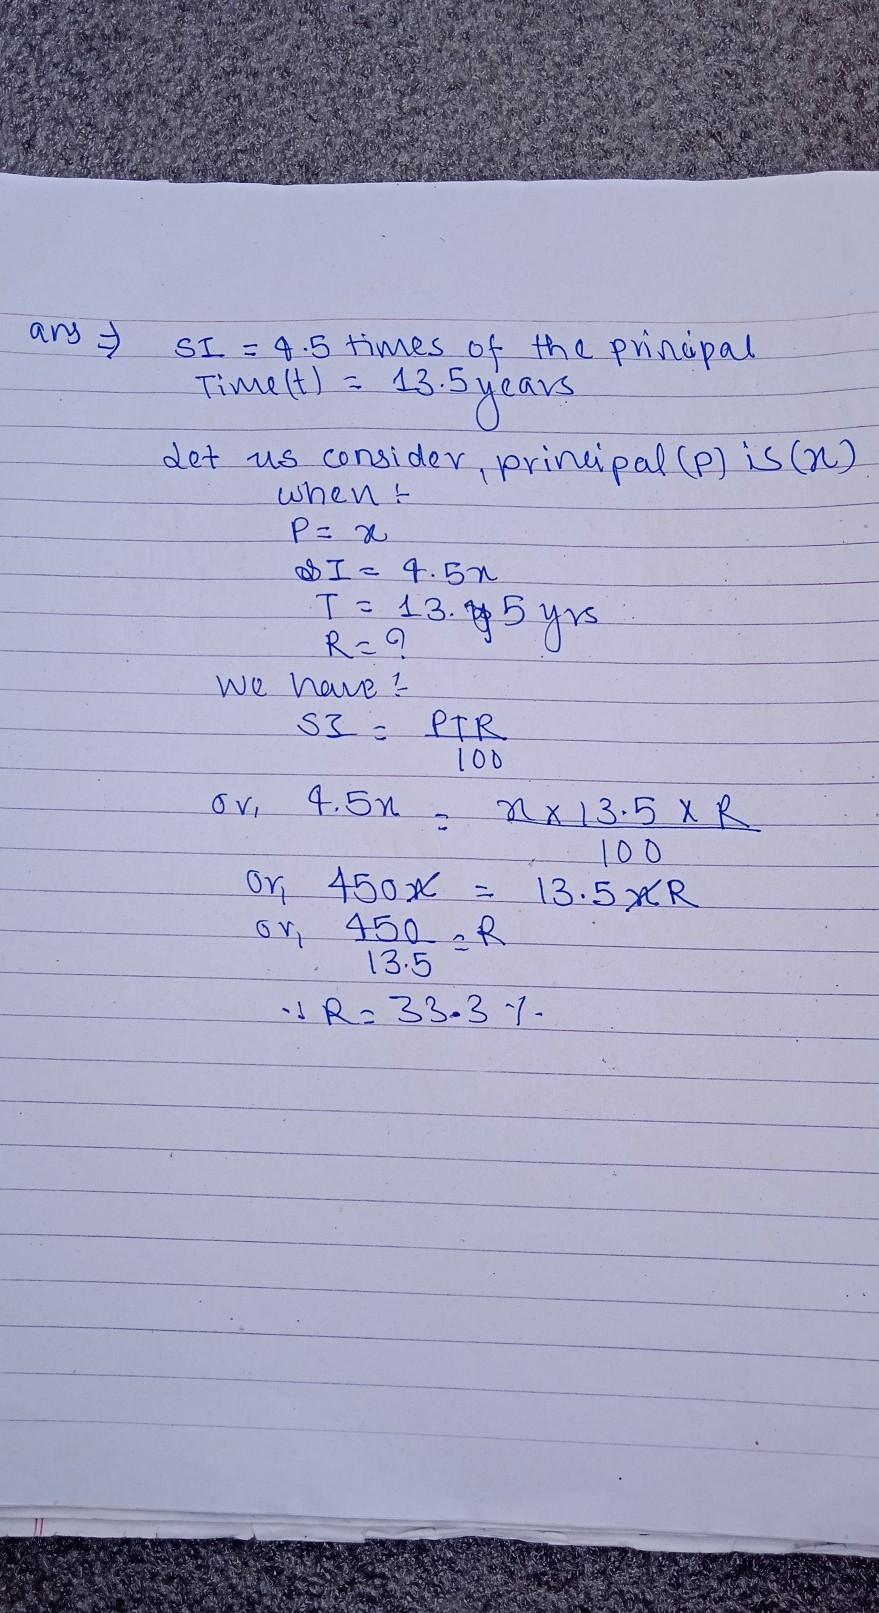 ans ⇒ SI = 4.5 times of the principal
Time(t) = 13.5 years
Let us consider, principal (P) is (x)
when :-
P = x
SI = 4.5x
T = 13.5 yrs
R = ?
We have :-
SI = PTR
100
or, 4.5x = x × 13.5 × R
100
or, 450x = 13.5xR
or, 450 = R
13.5
∴ R = 33.3 %.